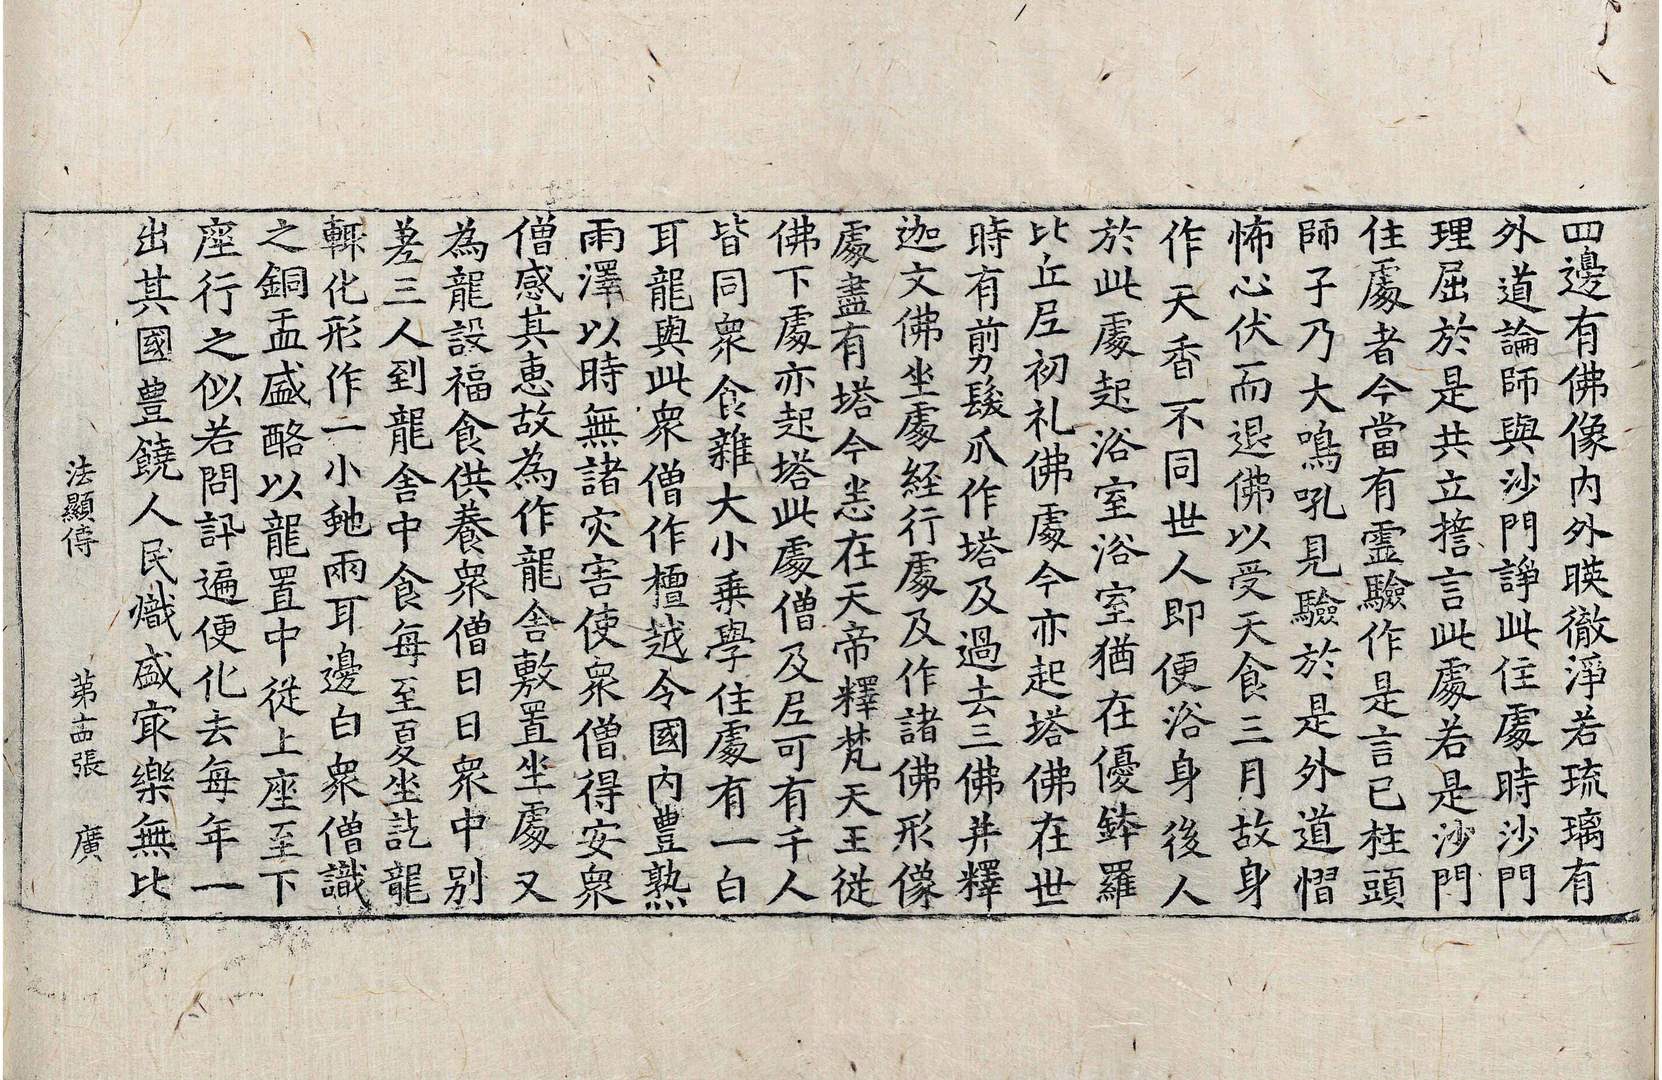 四邊有佛像内外暎徹淨若琉璃有
外道論師與沙門諍此住處時沙門
理屈於是共立擔言此處若是沙門
住處者今當有霊驗作是言已柱頭
師子乃大鳴吼見驗於是外道慴
怖心伏而退佛以受天食三月故身
作天香不同世人即便浴身後人
於此處起浴室浴室猶在優鉢羅
比丘尼初礼佛處今亦起塔佛在世
時有剪髮爪作塔及過去三佛并釋
迦文佛坐處経行處及作諸佛形像
處盡有塔今悉在天帝釋梵天王従
佛下處亦起塔此處僧及尼可有千人
皆同衆食雜大小乗學住處有一白
耳龍與此衆僧作檀越令國内豊熟
雨澤以時無諸灾害使衆僧得安衆
僧感其惠故為作龍舎敷置坐處又
為龍設福食供養衆僧日日衆中別
差三人到龍舎中食每至夏坐訖龍
輙化形作一小虵兩耳邊白衆僧識
之銅盂盛酪以龍置中従上座至下
座行之似若問訊遍便化去每年一
出其國豊饒人民熾盛㝡樂無比
法顯傳 第十四張 廣